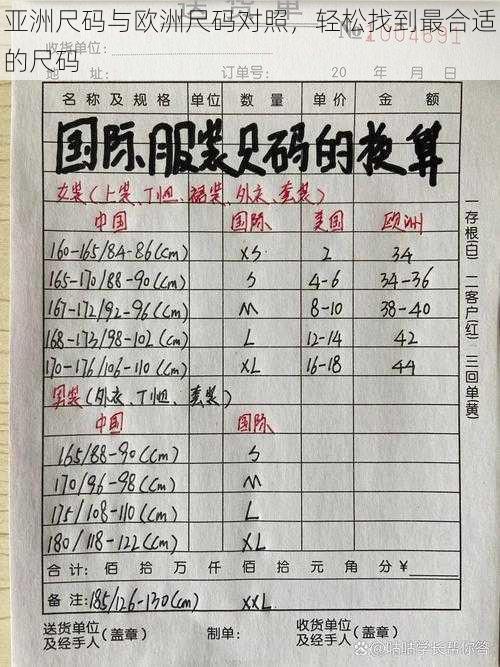 亚洲尺码与欧洲尺码对照，轻松找到最合适
的尺码
送 货 单
地址： 订单号： 20 年 月 日
名称及规格 单位 数量 单价 金额
国际服装尺码的换算
女装（上装、T恤、裙装、外衣、套装）
中国 国际 美国 欧洲
160-165/84-86(cm) XS 2 34
165-170/88-90(cm) S 4-6 34-36
167-172/92-96(cm) M 8-10 38-40
168-173/98-102(cm) L 12-14 42
170-176/106-110(cm) XL 16-18 44
男装（外衣、T恤、套装）
中国 国际
165/88-90(cm) S
170/96-98(cm) M
175/108-110(cm) L
180/118-122(cm) XL
合计： 佰 拾 万 仟 佰 拾 元 角 分 ¥
备注：185/126-130(cm) XXL
送货单位 制单： 收货单位
及经手人（盖章） 及经手人（盖章）
一存根(白) 二客户(红) 三回单(黄)